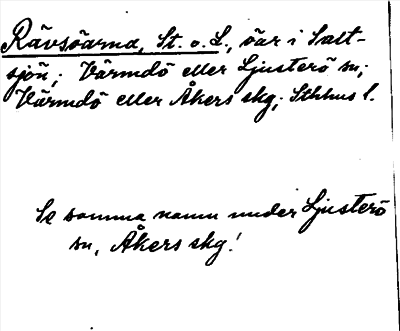 Rävsöarna, St. o. L., öar i Salt-
sjön; Värmdö eller Ljusterö sn;
Värmdö eller Åkers skg; Sthlms l.
Se samma namn under Ljusterö
sn, Åkers skg!